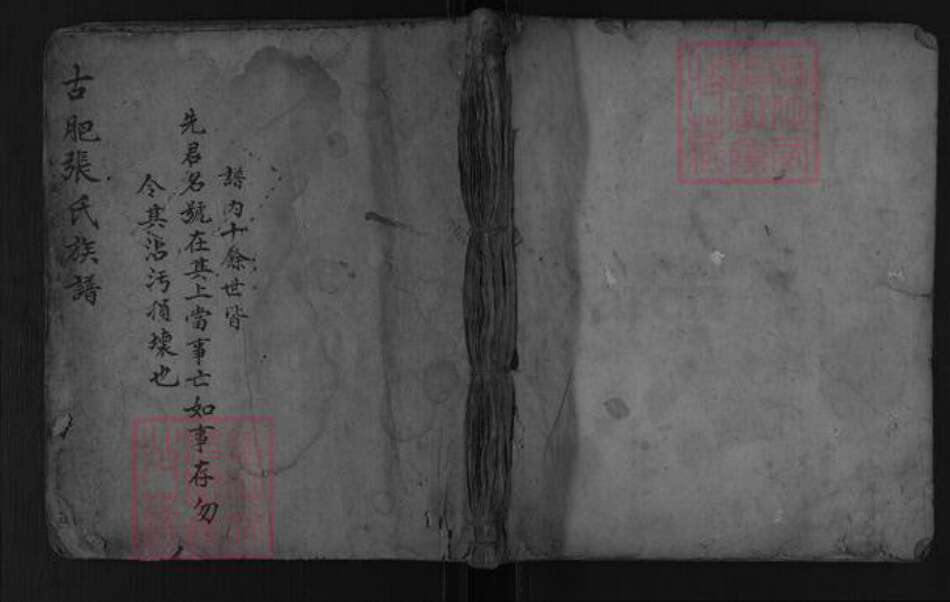 譜内十餘世皆
先君名號在其上當事亡如事存勿
令其沾污損壞也
古肥張氏族譜